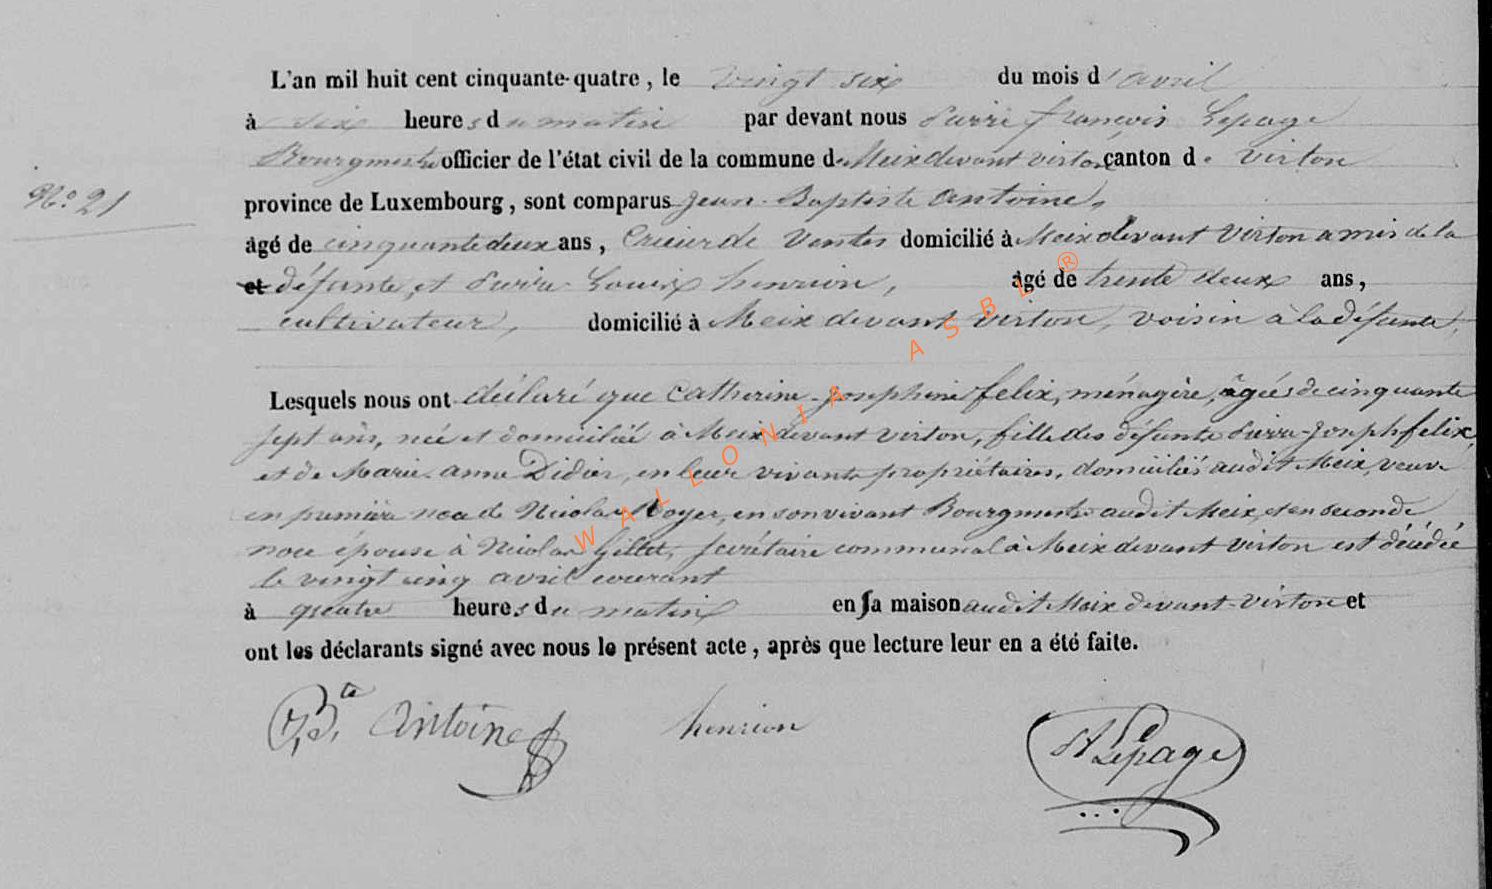 L'an mil huit cent cinquante-quatre, le vingt six du mois d'avril
à six heures du matin par devant nous Pierre françois Lepage
Bourgmestre officier de l'état civil de la commune de Meix devant virton canton de virton
N.° 21
province de Luxembourg, sont comparus Jean-Baptiste Antoine,
âgé de cinquante deux ans, Crieur de Ventes domicilié à Meix devant Virton amis de la
et défunte, et Pierre Louis henrion, âgé de trente deux ans,
cultivateur, domicilié à Meix devant virton, voisin à la défunte,
Lesquels nous ont déclaré que Catherine-Josephine felix, ménagère, âgées de cinquante
sept ans, née et domiciliée à Meix devant virton, fille des défunts Pierre-Joseph felix,
et de Marie-anne Didier, en leur vivants propriétaires, domiciliés audit Meix, veuve
en première noce de Nicolas Noyer, en son vivant Bourgmestre audit Meix, et en seconde
noce épouse à Nicolas Gillet, secrétaire communal à Meix devant virton est décédée
le vingt cinq avril courant
à quatre heures du matin en sa maison audit Meix devant-virton et
ont les déclarants signé avec nous le présent acte, après que lecture leur en a été faite.
J,B,te Antoine henrion Lepage
WALLONIA ASBL ®